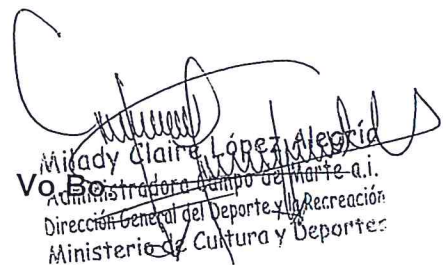 Milady Claire López Alegría
Vo.Bo.
Administradora Campo de Marte a.i.
Dirección General del Deporte y la Recreación
Ministerio de Cultura y Deportes